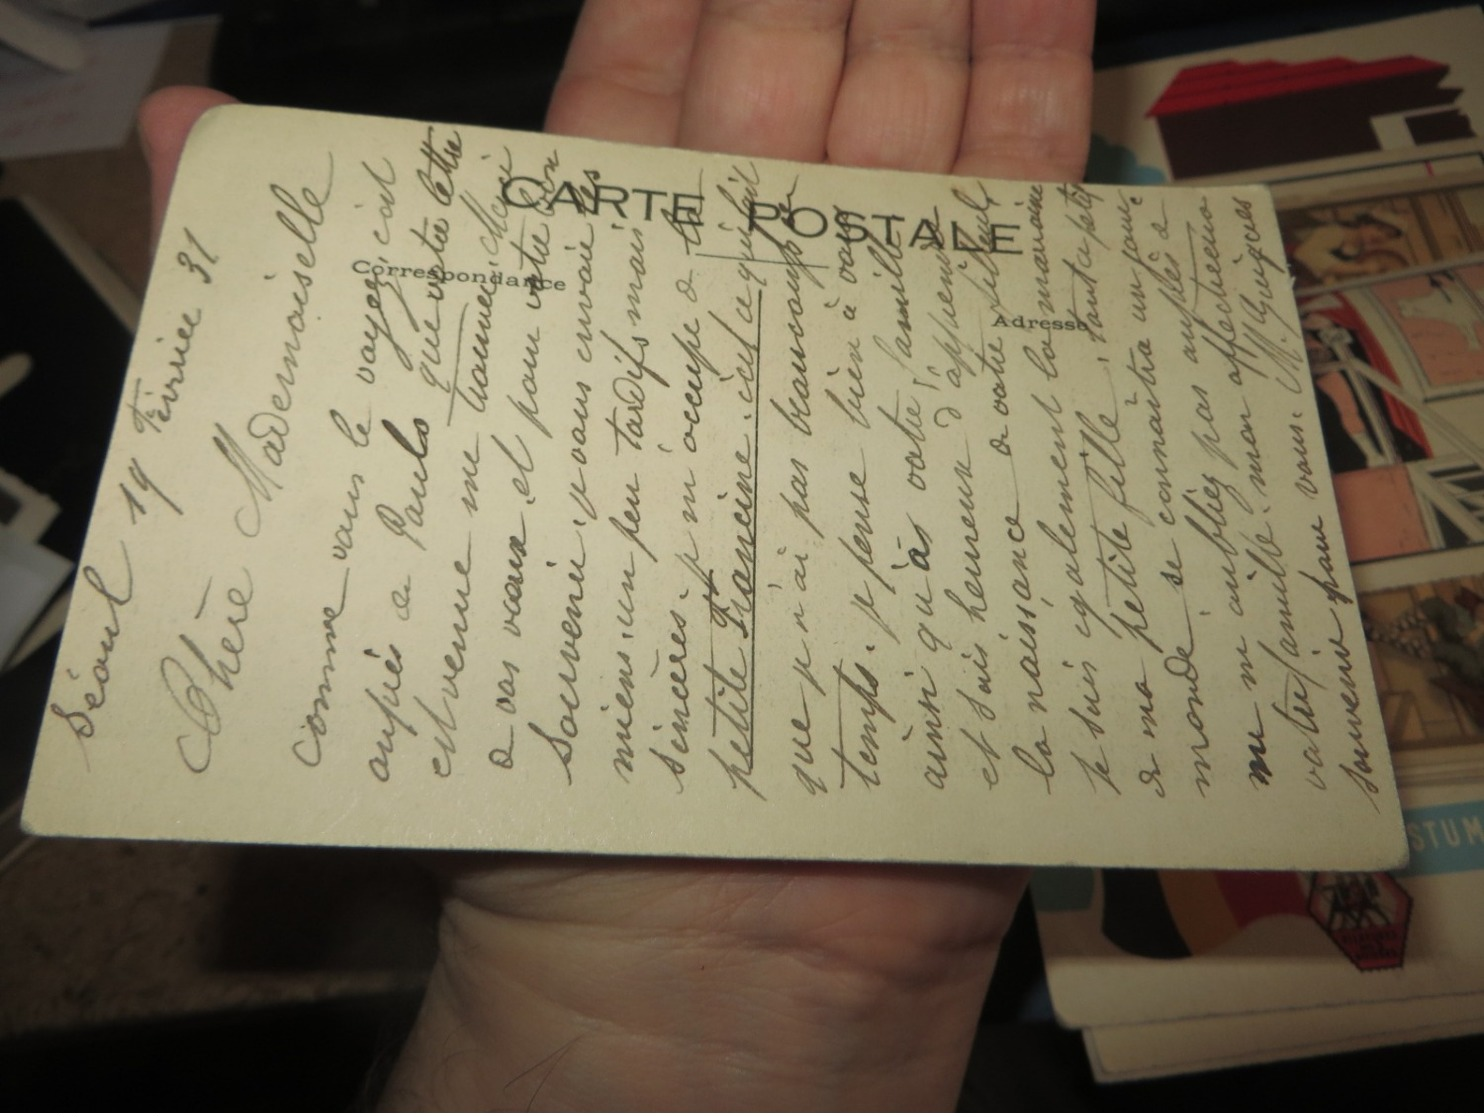 CARTE POSTALE
Correspondance
Adresse
Séoul 19 Février 31
Chère Mademoiselle
Comme vous le voyez, c'est
auprès de que votre lettre
est venue me Merci
à vos vœux et pour votre bon
souvenir, je vous envoie les
miens, un peu tardifs mais
sincères. Je m'occupe de la
petite Francine. c'est ce qui fait
que je n'ai pas beaucoup de
temps. je pense bien à vous
ainsi qu'à votre famille
et suis heureuse d'apprendre
la naissance de votre filleul,
je suis également la marraine
de ma petite fille, tout ce petit
monde se connaîtra un jour
ne m'oubliez pas auprès de
votre famille. mon affectueux
souvenir pour vous. M.
STUM